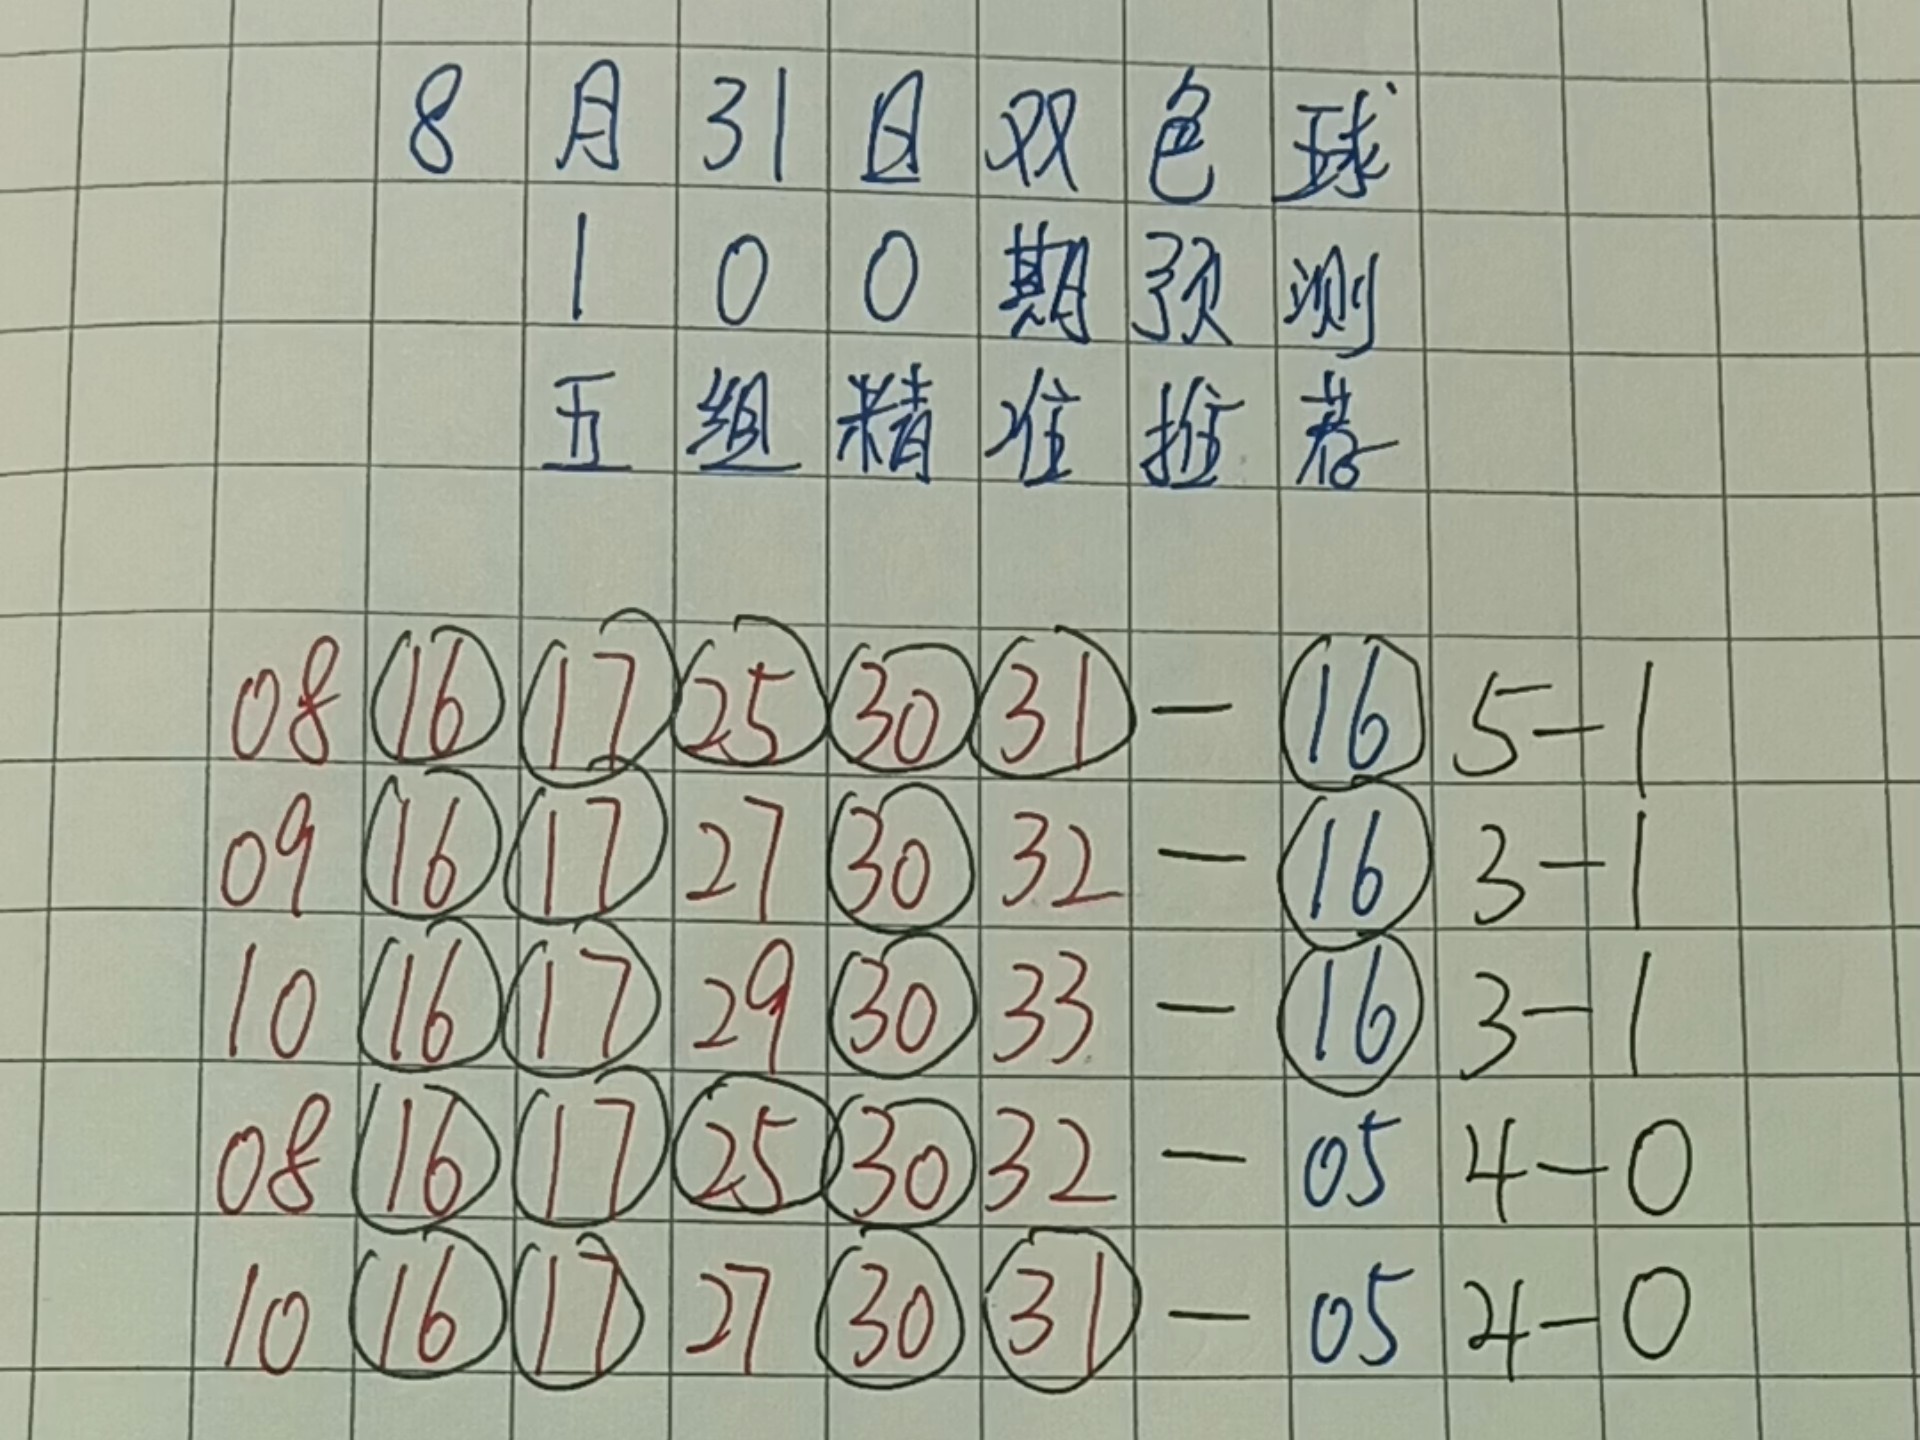 8月31日双色球
100期预测
五组精准推荐
08 16 17 25 30 31 — 16 5—1
09 16 17 27 30 32 — 16 3—1
10 16 17 29 30 33 — 16 3—1
08 16 17 25 30 32 — 05 4—0
10 16 17 27 30 31 — 05 4—0